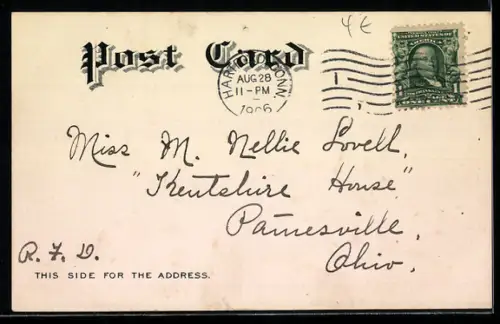 4 E
Post Card
HARTFORD CONN.
AUG 28
11-PM
1906
Miss M. Nellie Lovell,
"Kentshire House"
Painesville,
Ohio.
R. F. D.
THIS SIDE FOR THE ADDRESS.